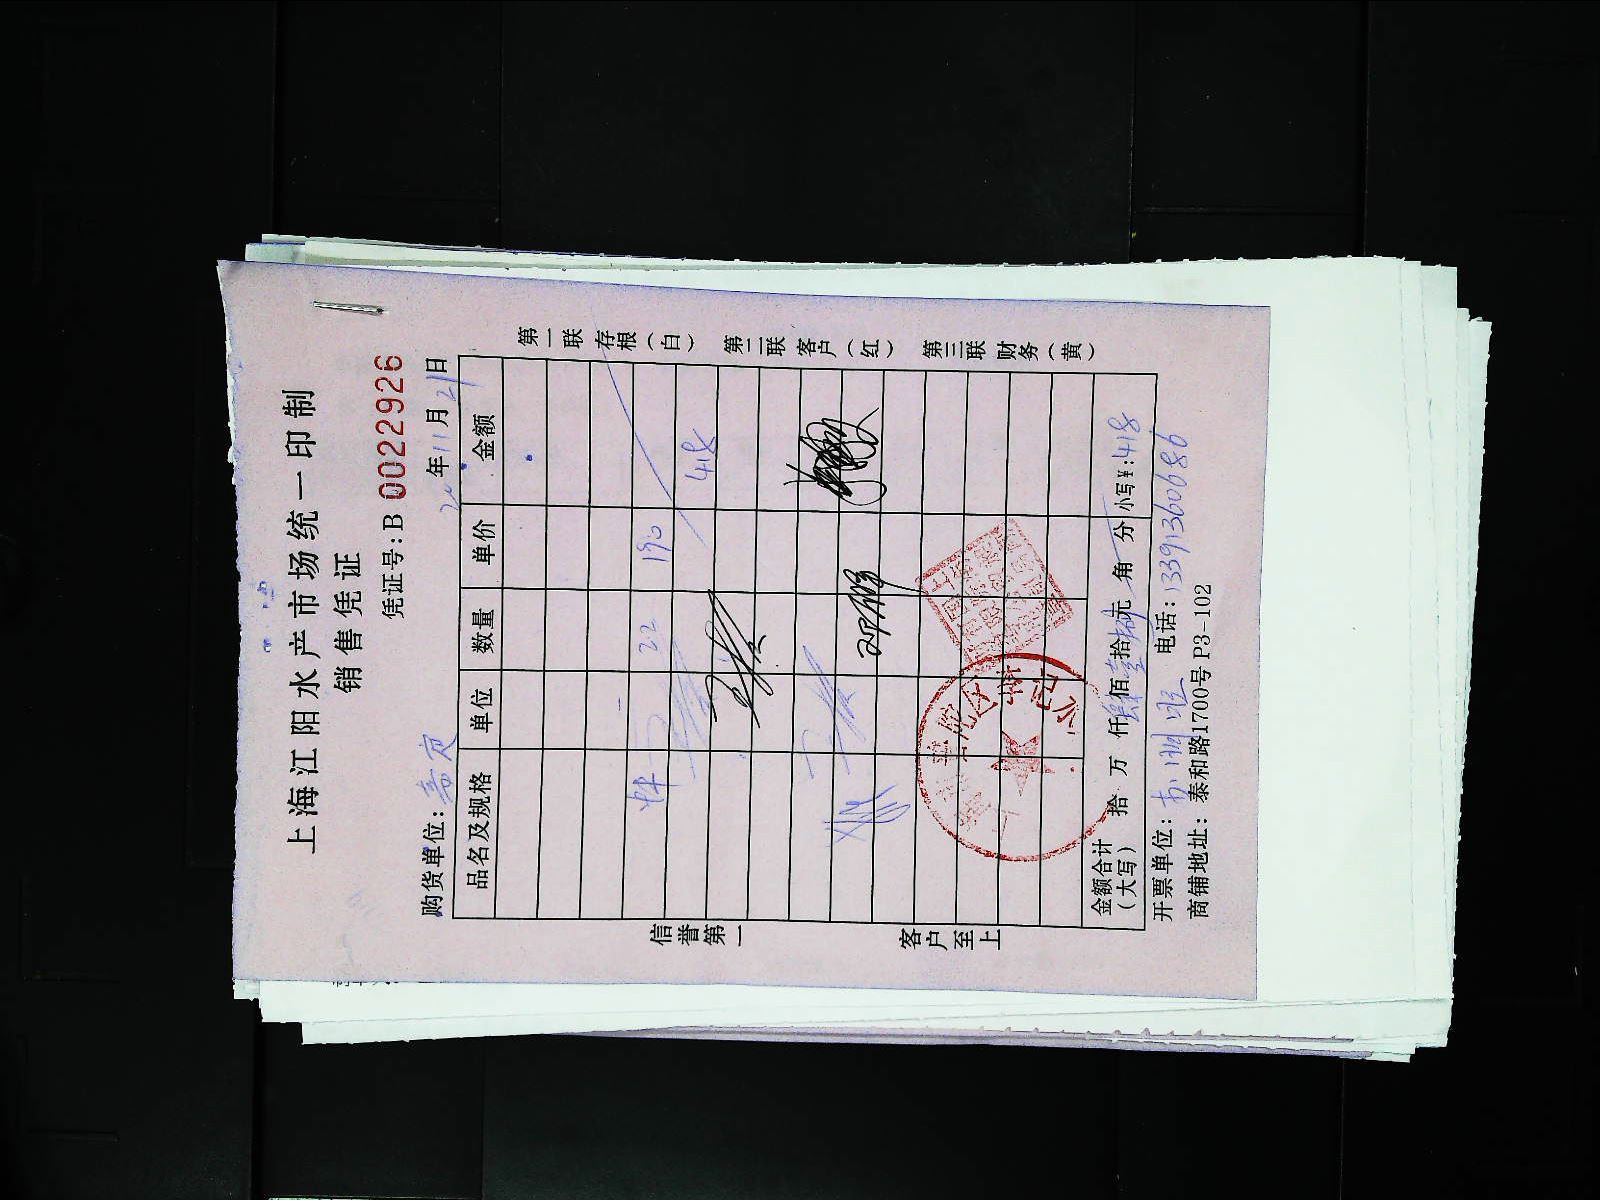 上海江阳水产市场统一印制
销售凭证
凭证号:B 0022926
购货单位: 嘉定 20年11月21日
品名及规格 单位 数量 单价 金额
22 190
418
信誉第一 客户至上
第一联 存根(白) 第二联 客户(红) 第三联 财务(黄)
金额合计(大写) 拾 万 仟 肆佰壹拾捌元 角 分 小写¥:418
开票单位: 电话:13391360686
商铺地址: 泰和路1700号P3-102